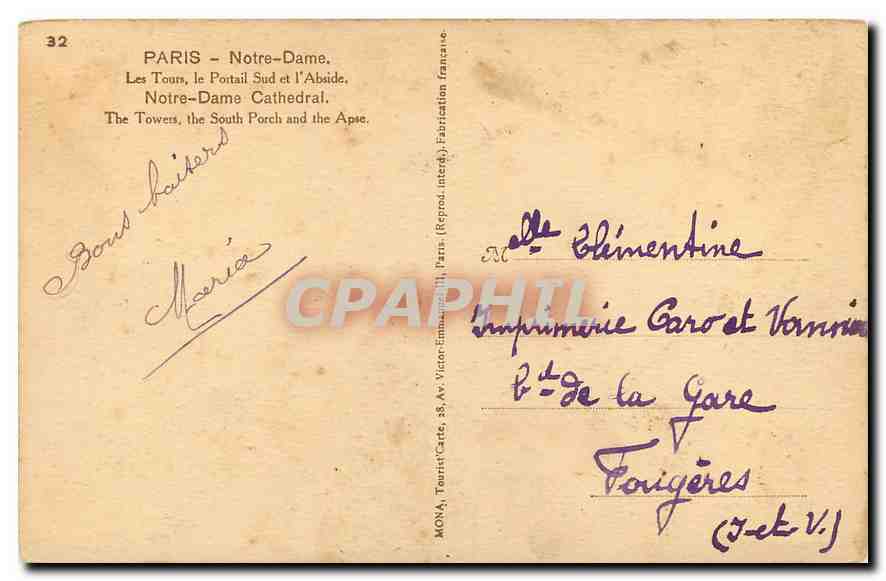 32
PARIS - Notre-Dame.
Les Tours, le Portail Sud et l'Abside.
Notre-Dame Cathedral.
The Towers, the South Porch and the Apse.
Bons baisers
Maria
MONA, Tourist'Carte, 28, Av. Victor-Emmanuel III, Paris. (Reprod. interd.). Fabrication française.
CPAPHIL
Melle Clémentine
Imprimerie Caro et
bd de la Gare
Fougères
(I-et-V.)